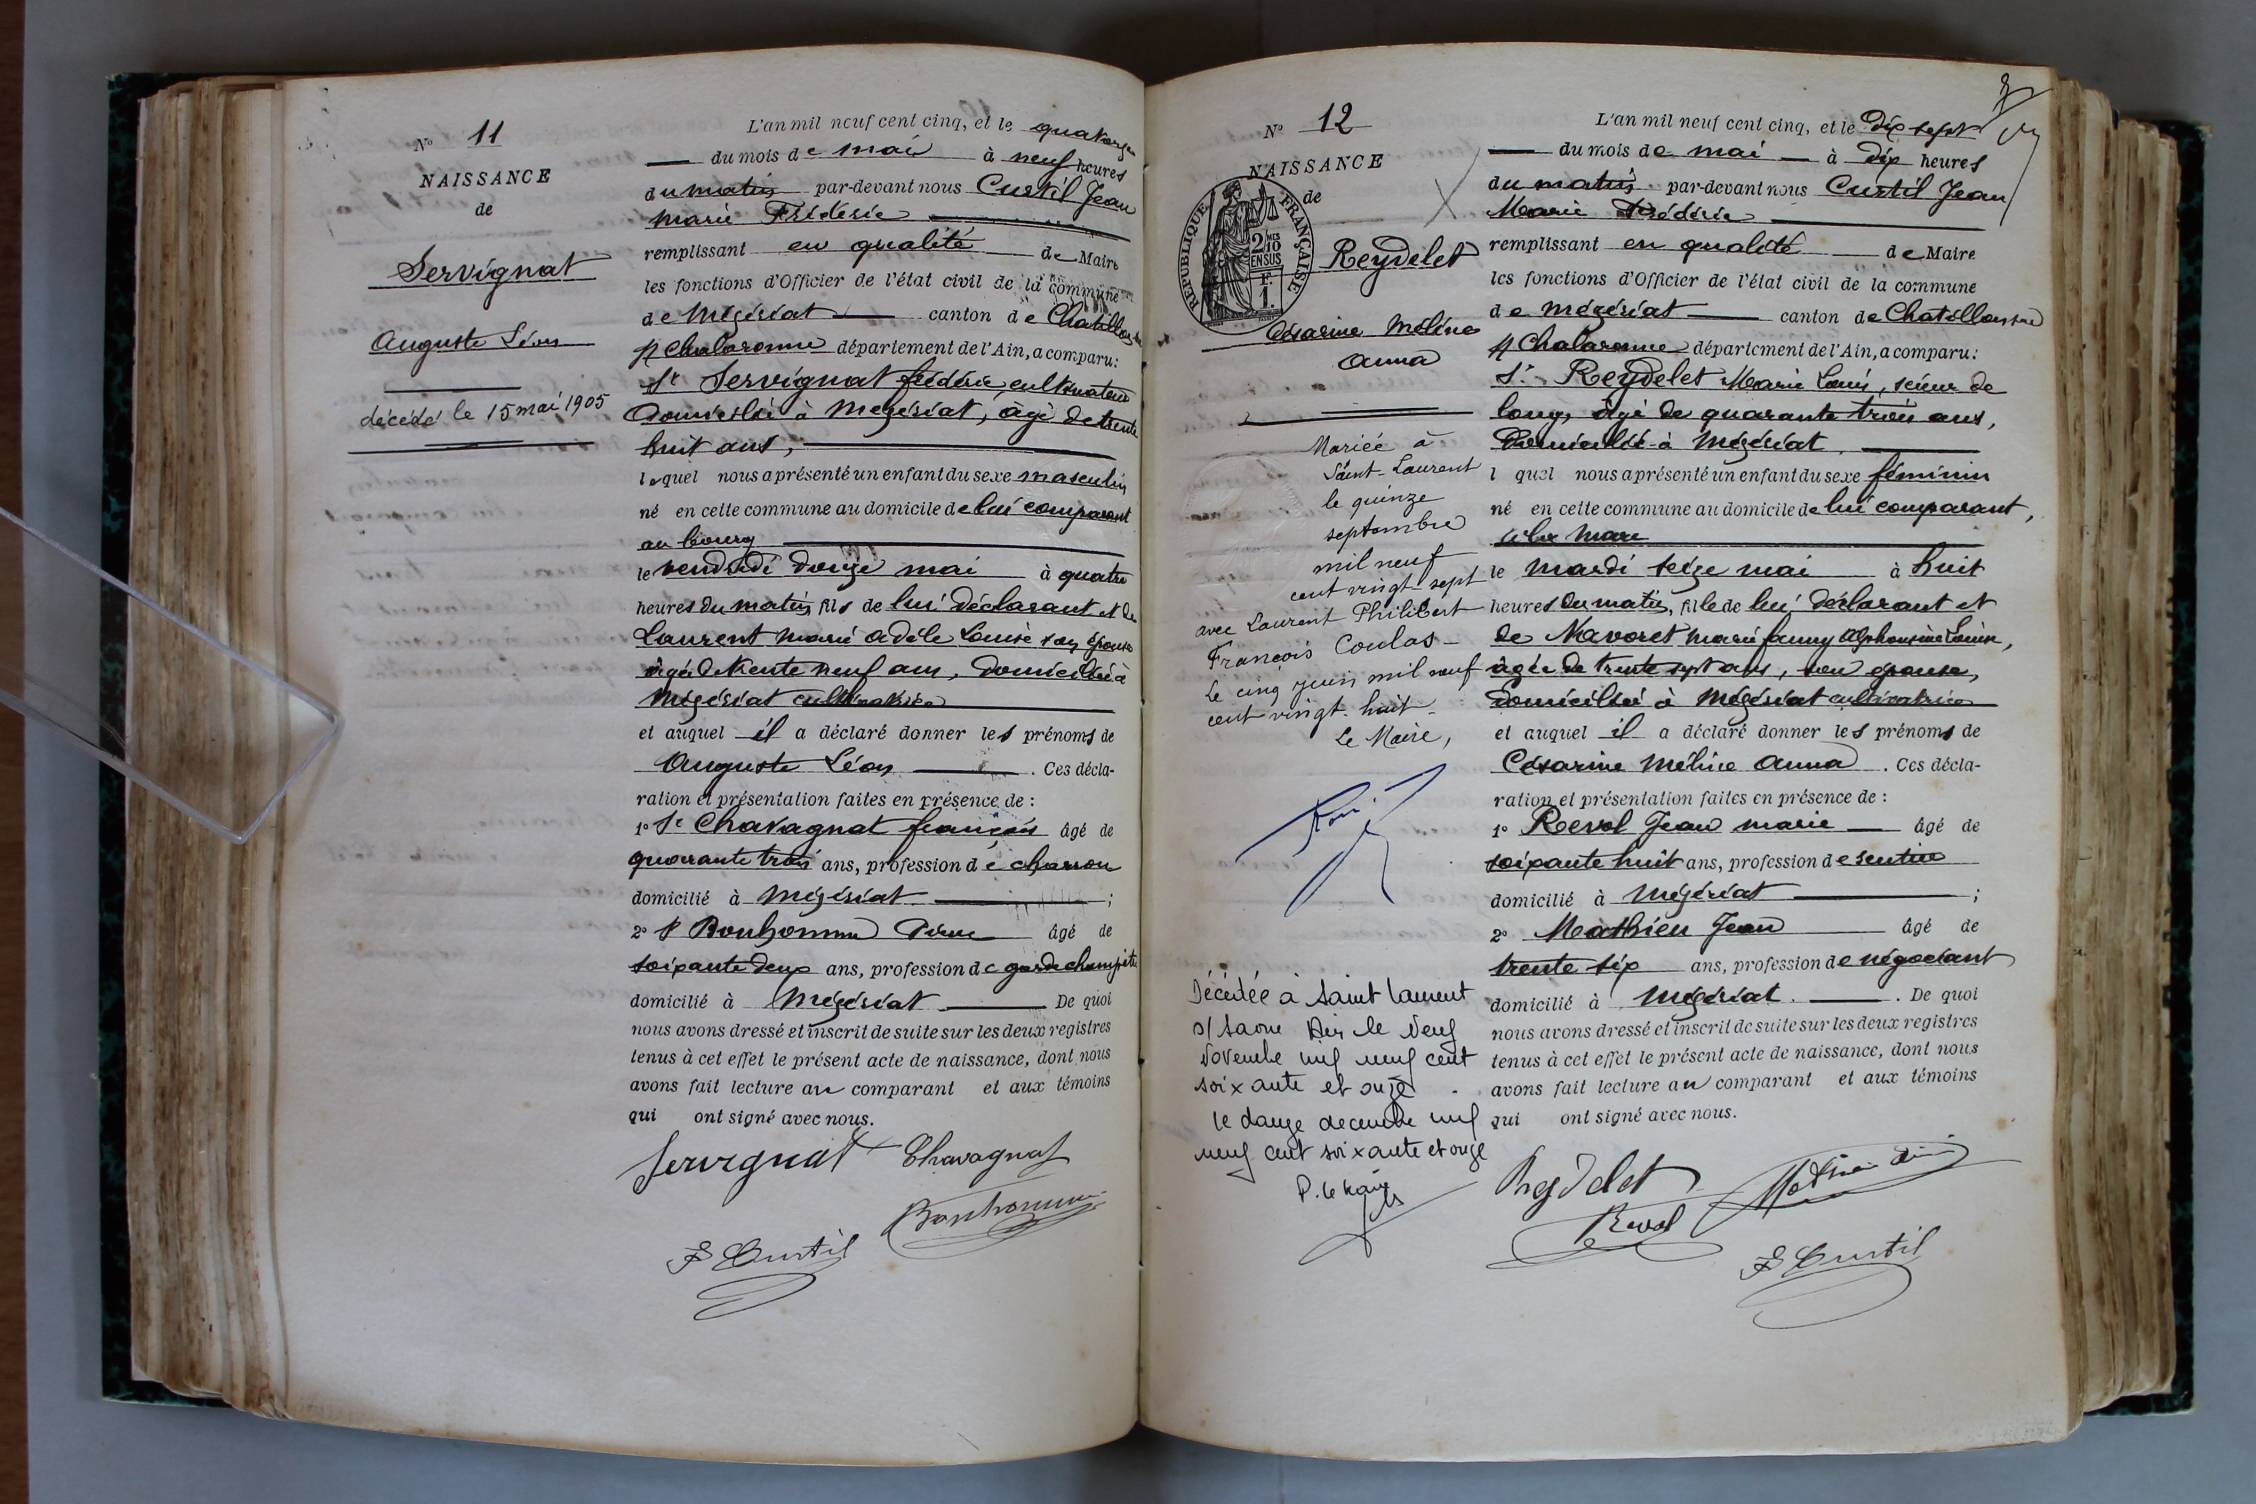 N° 11
NAISSANCE
de
Servignat
Auguste Léon
décédé le 15 mai 1905
L'an mil neuf cent cinq, et le quatorze
du mois de mai à neuf heures
du matin par-devant nous Curtil Jean
Marie Frédéric
remplissant en qualité de Maire
les fonctions d'Officier de l'état civil de la commune
de Mézériat canton de Chatillon sur
s/ Chalaronne département de l'Ain, a comparu:
Sr Servignat frédéric, cultivateur
domicilié à Mézériat, âgé de trente
huit ans,
lequel nous a présenté un enfant du sexe masculin
né en cette commune au domicile de lui comparant
au bourg
le vendredi douze mai à quatre
heures du matin, fils de lui déclarant et de
Laurent Marie Adèle Louise son épouse
âgée de trente neuf ans, domiciliée à
Mézériat cultivatrice
et auquel il a déclaré donner les prénoms de
Auguste Léon. Ces décla-
ration et présentation faites en présence de :
1° Sr Chavagnat françois âgé de
quarante trois ans, profession de charron
domicilié à Mézériat ;
2° Sr Bonhomme âgé de
soixante deux ans, profession de garde champêtre
domicilié à Mézériat. De quoi
nous avons dressé et inscrit de suite sur les deux registres
tenus à cet effet le présent acte de naissance, dont nous
avons fait lecture au comparant et aux témoins
qui ont signé avec nous.
Servignat Chavagnat
Bonhomme
F Curtil
N° 12
NAISSANCE
de
RÉPUBLIQUE FRANÇAISE
2 MES
10
EN SUS
1 F.
Reydelet
Césarine Méline
Anna
Mariée à
Saint-Laurent
le quinze
septembre
mil neuf
cent vingt-sept
avec Laurent Philibert
François Coulas -
Le cinq juin mil neuf
cent vingt-huit -
Le Maire,
Décédée à Saint Laurent
s/ Saone Ain le neuf
novembre mil neuf cent
soixante et onze.
le douze decembre mil
neuf cent soixante et onze
P. le Maire
L'an mil neuf cent cinq, et le dix sept
du mois de mai à dix heures
du matin par-devant nous Curtil Jean
Marie Frédéric
remplissant en qualité de Maire
les fonctions d'Officier de l'état civil de la commune
de Mézériat canton de Chatillon sur
s/ Chalaronne département de l'Ain, a comparu:
Sr Reydelet Marie Louis, scieur de
long, âgé de quarante trois ans,
domicilié à Mézériat.
l quel nous a présenté un enfant du sexe féminin
né en cette commune au domicile de lui comparant,
à la mare
le mardi seize mai à huit
heures du matin, fille de lui déclarant et
de Navoret Marie fanny Alphonsine Louise,
âgée de trente sept ans, son épouse,
domiciliée à Mézériat cultivatrice
et auquel il a déclaré donner les prénoms de
Césarine Méline Anna. Ces décla-
ration et présentation faites en présence de :
1° Revol Jean Marie âgé de
soixante huit ans, profession de rentier
domicilié à Mézériat ;
2° Mathieu Jean âgé de
trente six ans, profession de négociant
domicilié à Mézériat. De quoi
nous avons dressé et inscrit de suite sur les deux registres
tenus à cet effet le présent acte de naissance, dont nous
avons fait lecture au comparant et aux témoins
qui ont signé avec nous.
Reydelet Mathieu
Revol
F Curtil